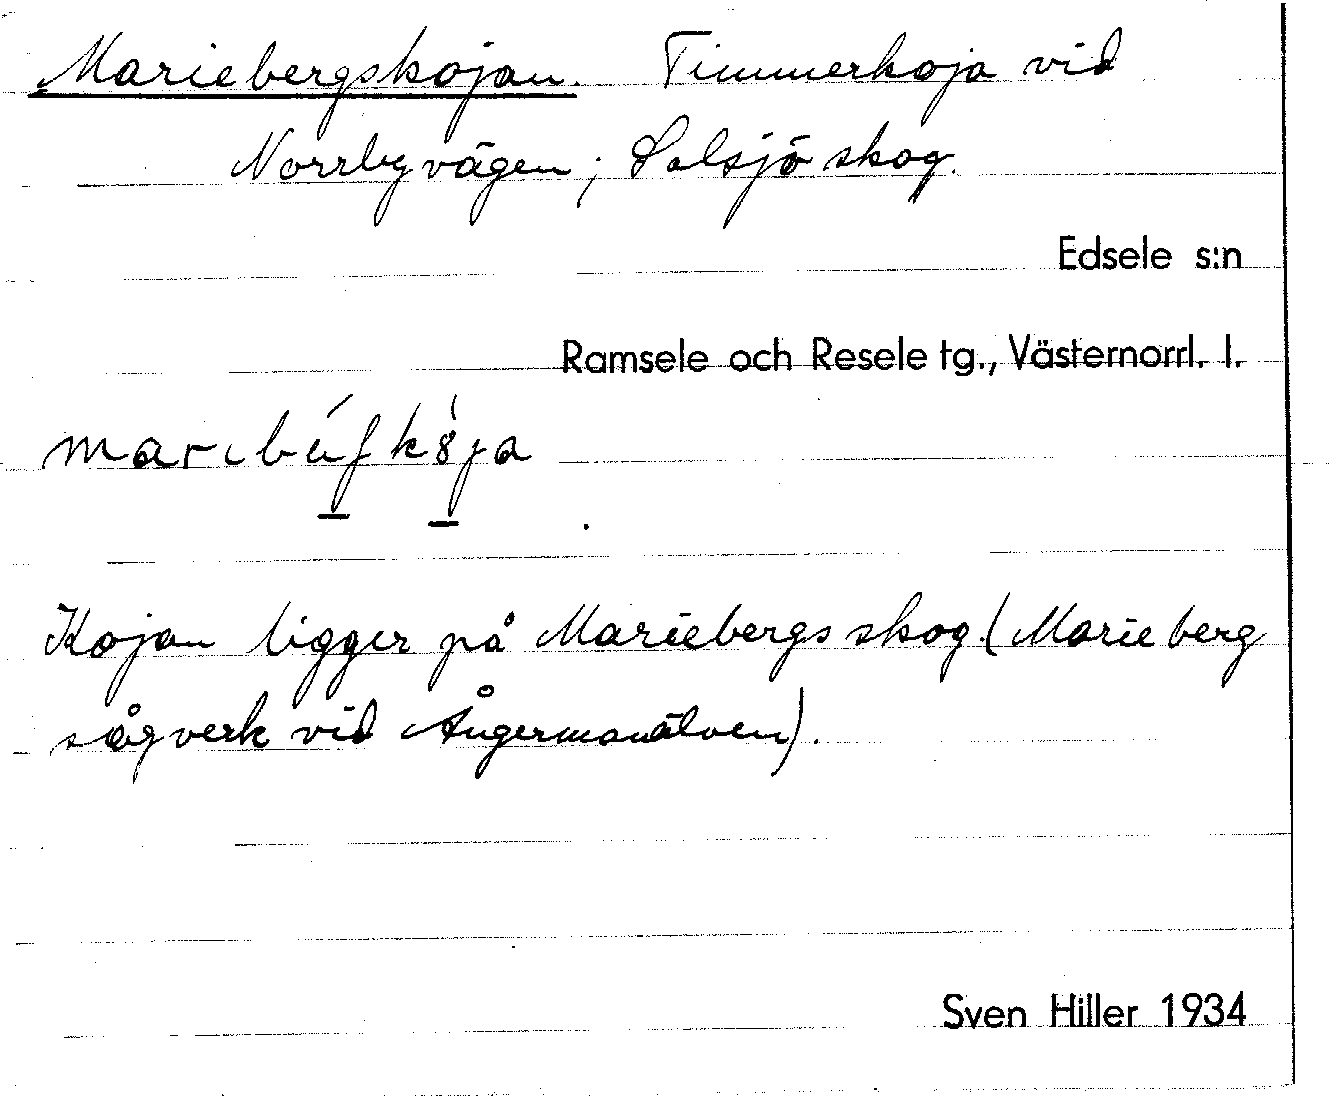 Mariebergskojan. Timmerkoja vid
Norrbyvägen; Salsjö skog.
Edsele s:n
Ramsele och Resele tg., Västernorrl. l.
Kojan ligger på Mariebergs skog. (Marieberg
sågverk vid Ångermanälven).
Sven Hiller 1934